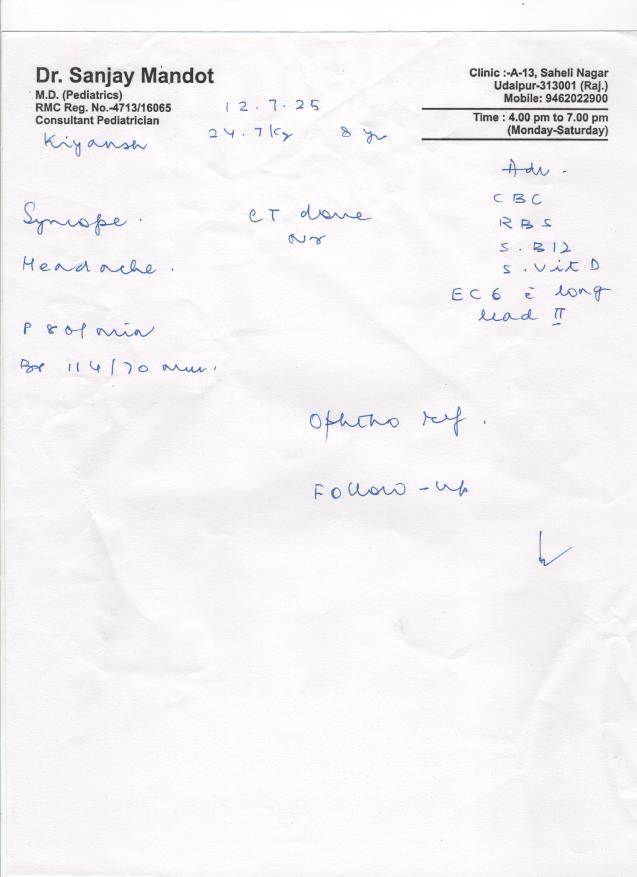 Dr. Sanjay Mandot
M.D. (Pediatrics)
RMC Reg. No.-4713/16065
Consultant Pediatrician
Clinic :-A-13, Saheli Nagar
Udaipur-313001 (Raj.)
Mobile: 9462022900
Time : 4.00 pm to 7.00 pm
(Monday-Saturday)
12.7.25
Kiyansh 24.7 kg 8 yr
Adv.
CBC
RBS
S. B12
S. Vit D
ECG c̄ long
lead II
Syncope.
Headache.
CT done
Nr
P 80/min
BP 114/70 mm.
Ophtho ref.
Follow-up